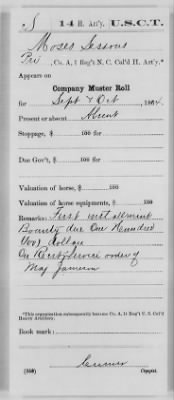 S | 14 H. Art'y. | U.S.C.T.
Moses Sessons
Pvt, Co. A, 1 Reg't N. C. Col'd H. Art'y.*
Appears on
Company Muster Roll
for Sept & Oct, 1864.
Present or absent Absent
Stoppage, $ 100 for
Due Gov't, $ 100 for
Valuation of horse, $ 100
Valuation of horse equipments, $ 100
Remarks: First installment
Bounty due One Hundred
dollars
On Recrt Service order of
Maj Jameson
*This organization subsequently became Co. A, 14 Reg't U. S. Col'd
Heavy Artillery.
Book mark:
(358)
Copyist.